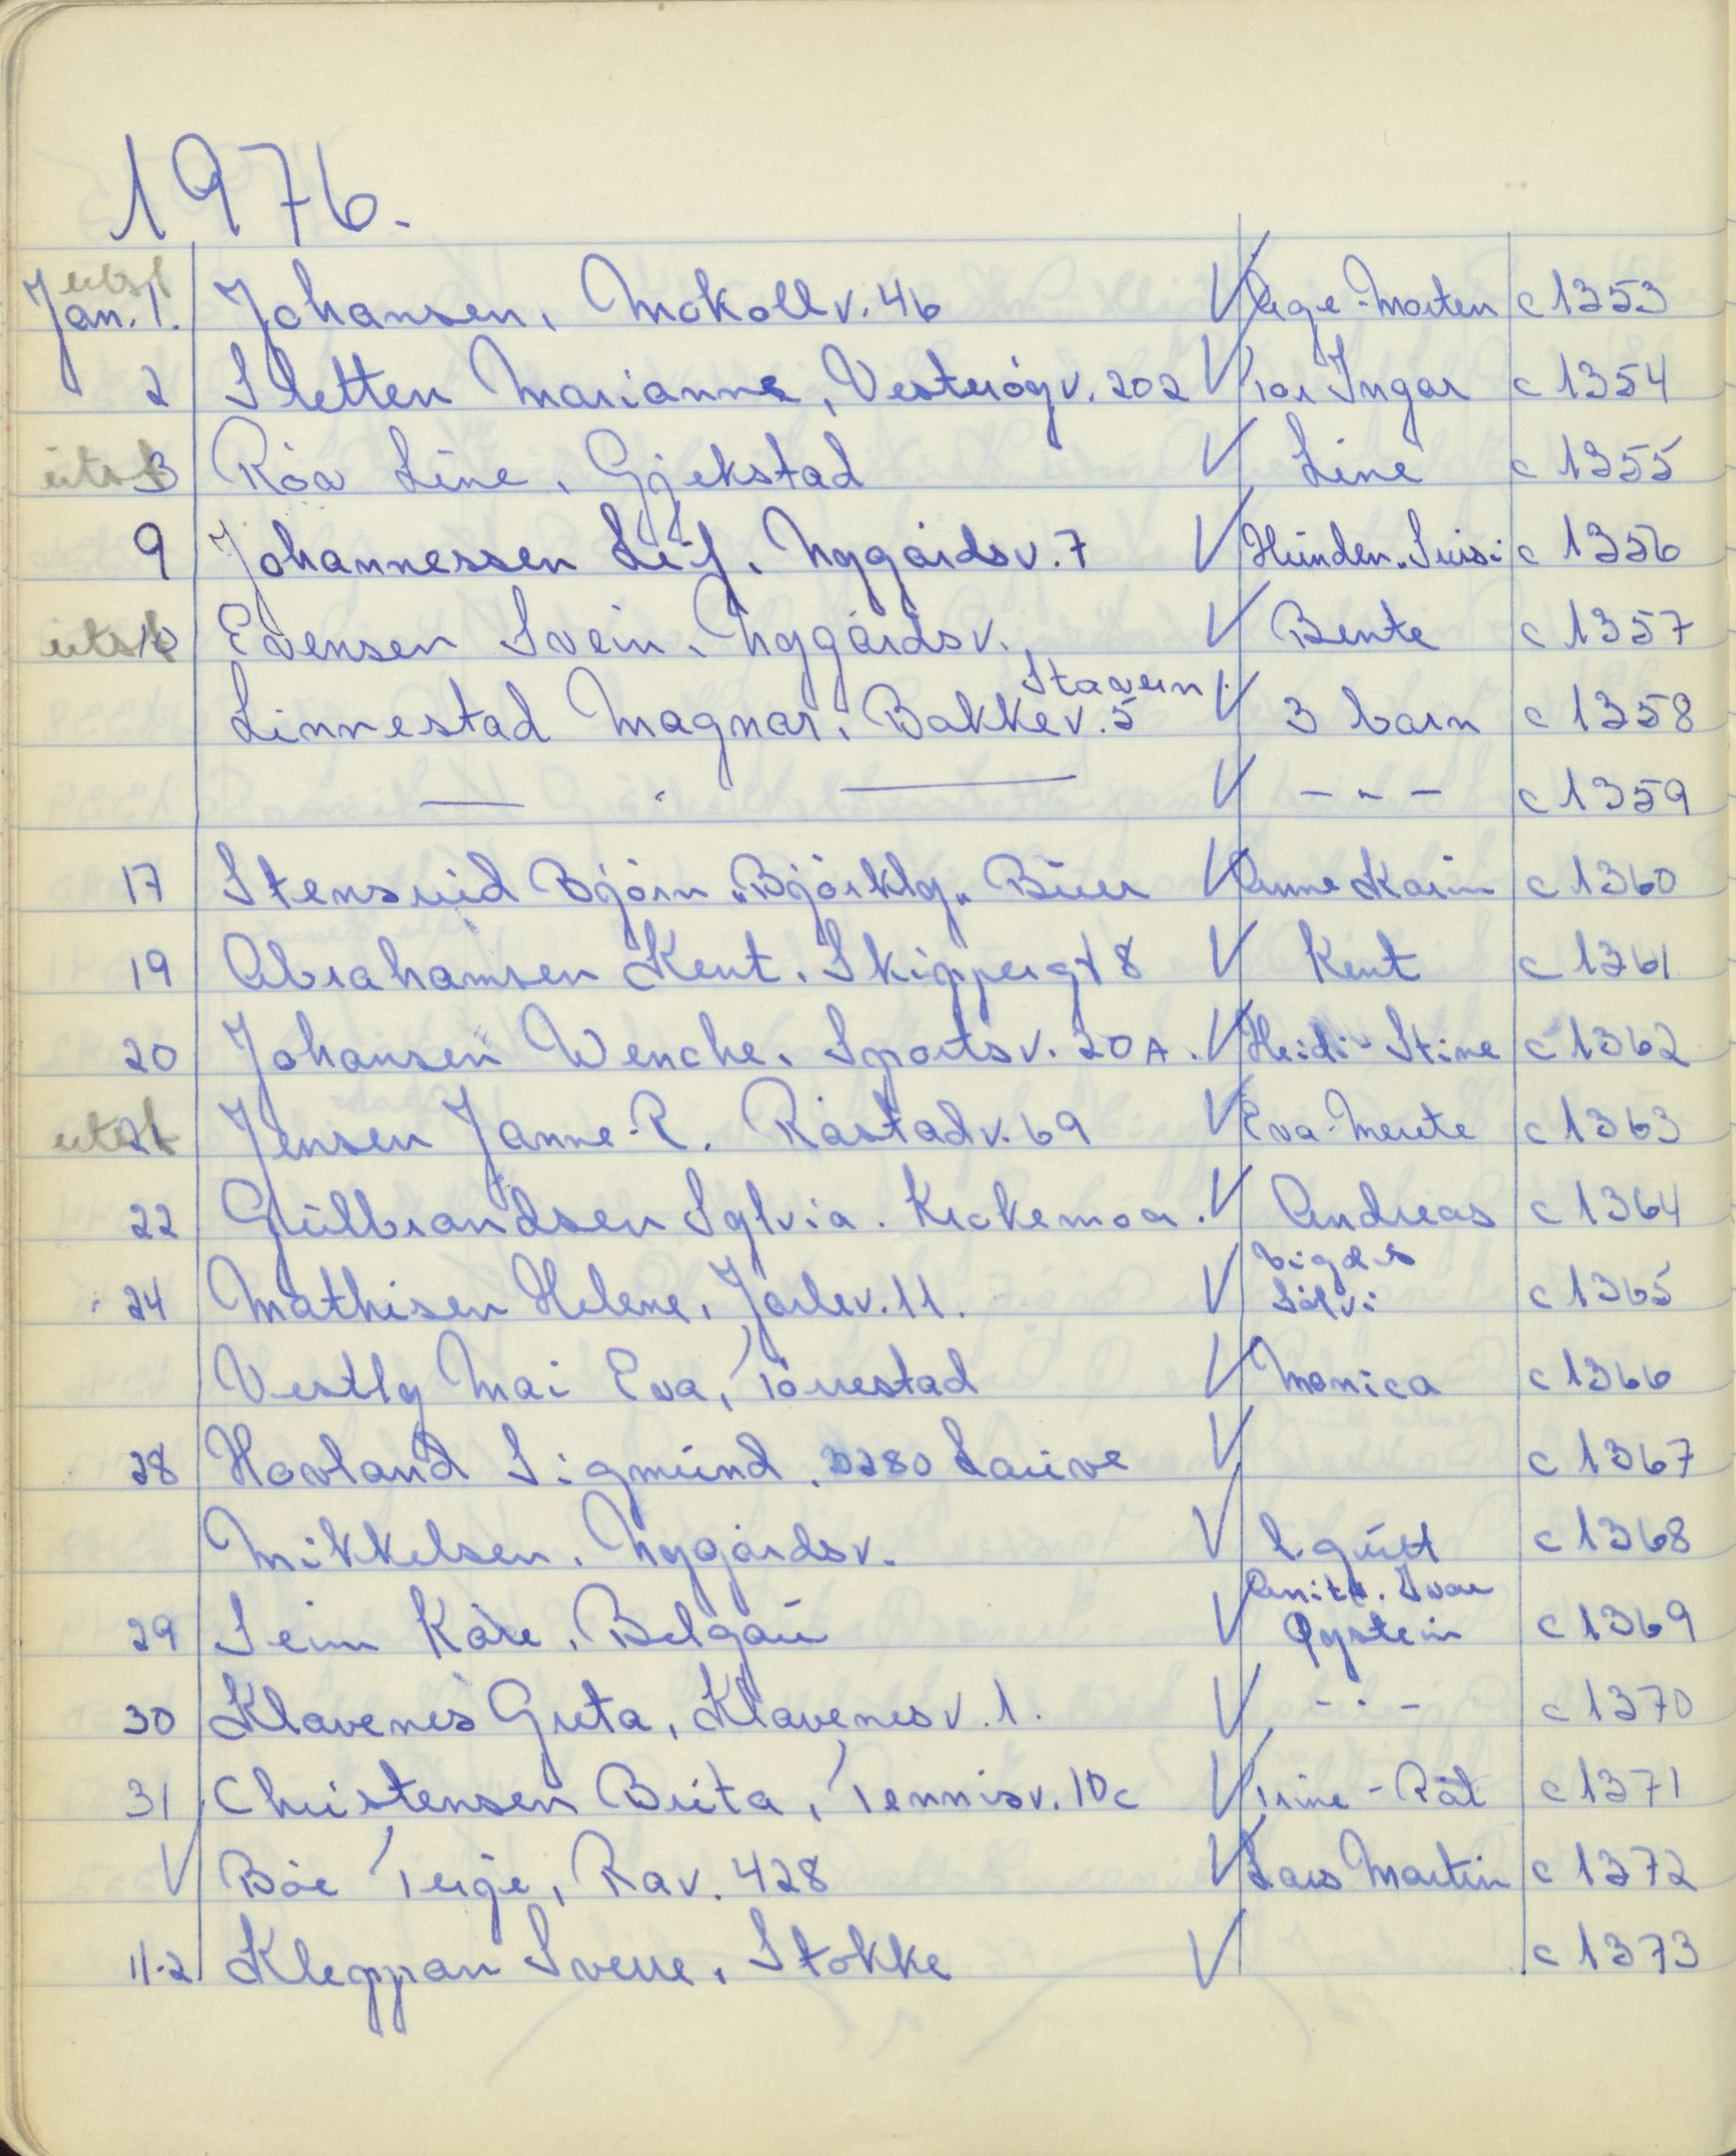 1976.
utst
Jan. 1. Johansen, Mokollv. 46 √ Åge-Morten c 1353
2 Sletten Marianne, Vesterøyv. 202 √ Tor Ingar c 1354
utst 3 Röa Line, Gjekstad √ Line c 1355
9 Johannessen Leif, Nygårdsv. 7 √ Hunden "Susi c 1356
utst 10 Evensen Svein, Nygårdsv. √ Bente c 1357
Stavern.
Linnestad Magnar, Bakkev. 5 √ 3 barn c 1358
— " — √ - " - c 1359
17 Stensrud Björn "Björkly" Buer √ Anne Karin c 1360
19 Abrahamsen Kent, Skippergt 8 √ Kent c 1361
20 Johansen Wenche, Sportsv. 20 A. √ Heidi-Stine c 1362
utst 21 Jensen Janne-R. Råstadv. 69 √ Eva-Merete c 1363
22 Gulbrandsen Sylvia. Krokemoa. √ Andreas c 1364
Vigdis
24 Mathisen Helene, Jarlev. 11. √ Sølvi c 1365
Vestly Mai Eva, Torrestad √ Monica c 1366
28 Hovland Sigmund, 3280 Lauve √ c 1367
Mikkelsen, Nygårdsv. √ l. gutt c 1368
Anita. Ivar
29 Seim Kåre, Belgau √ Øystein c 1369
30 Klavenes Greta, Klavenesv. 1. √ - " - c 1370
31 Christensen Brita, Tennisv. 10c √ Trine-Pål c 1371
√ Böe Terje, Rav. 428 √ Lars Martin c 1372
11.2 Kleppan Sverre, Stokke √ c 1373